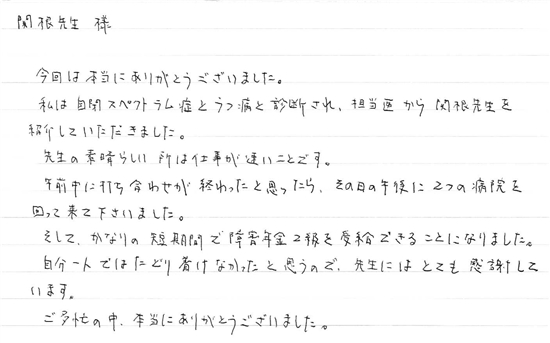 関根先生 様
今回は本当にありがとうございました。
私は自閉スペクトラム症とうつ病と診断され、担当医から関根先生を
紹介していただきました。
先生の素晴らしい所は仕事が速いことです。
午前中に打ち合わせが終わったと思ったら、その日の午後に2つの病院を
回って来て下さいました。
そして、かなりの短期間で障害年金2級を受給できることになりました。
自分一人ではたどり着けなかったと思うので、先生にはとても感謝して
います。
ご多忙の中、本当にありがとうございました。